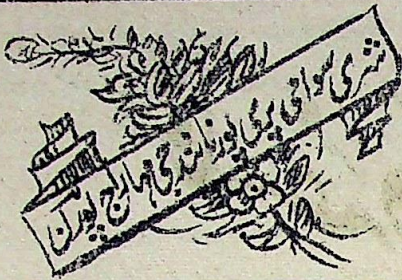 شری سوامی پریم پورنانند جی مہاراج پورن